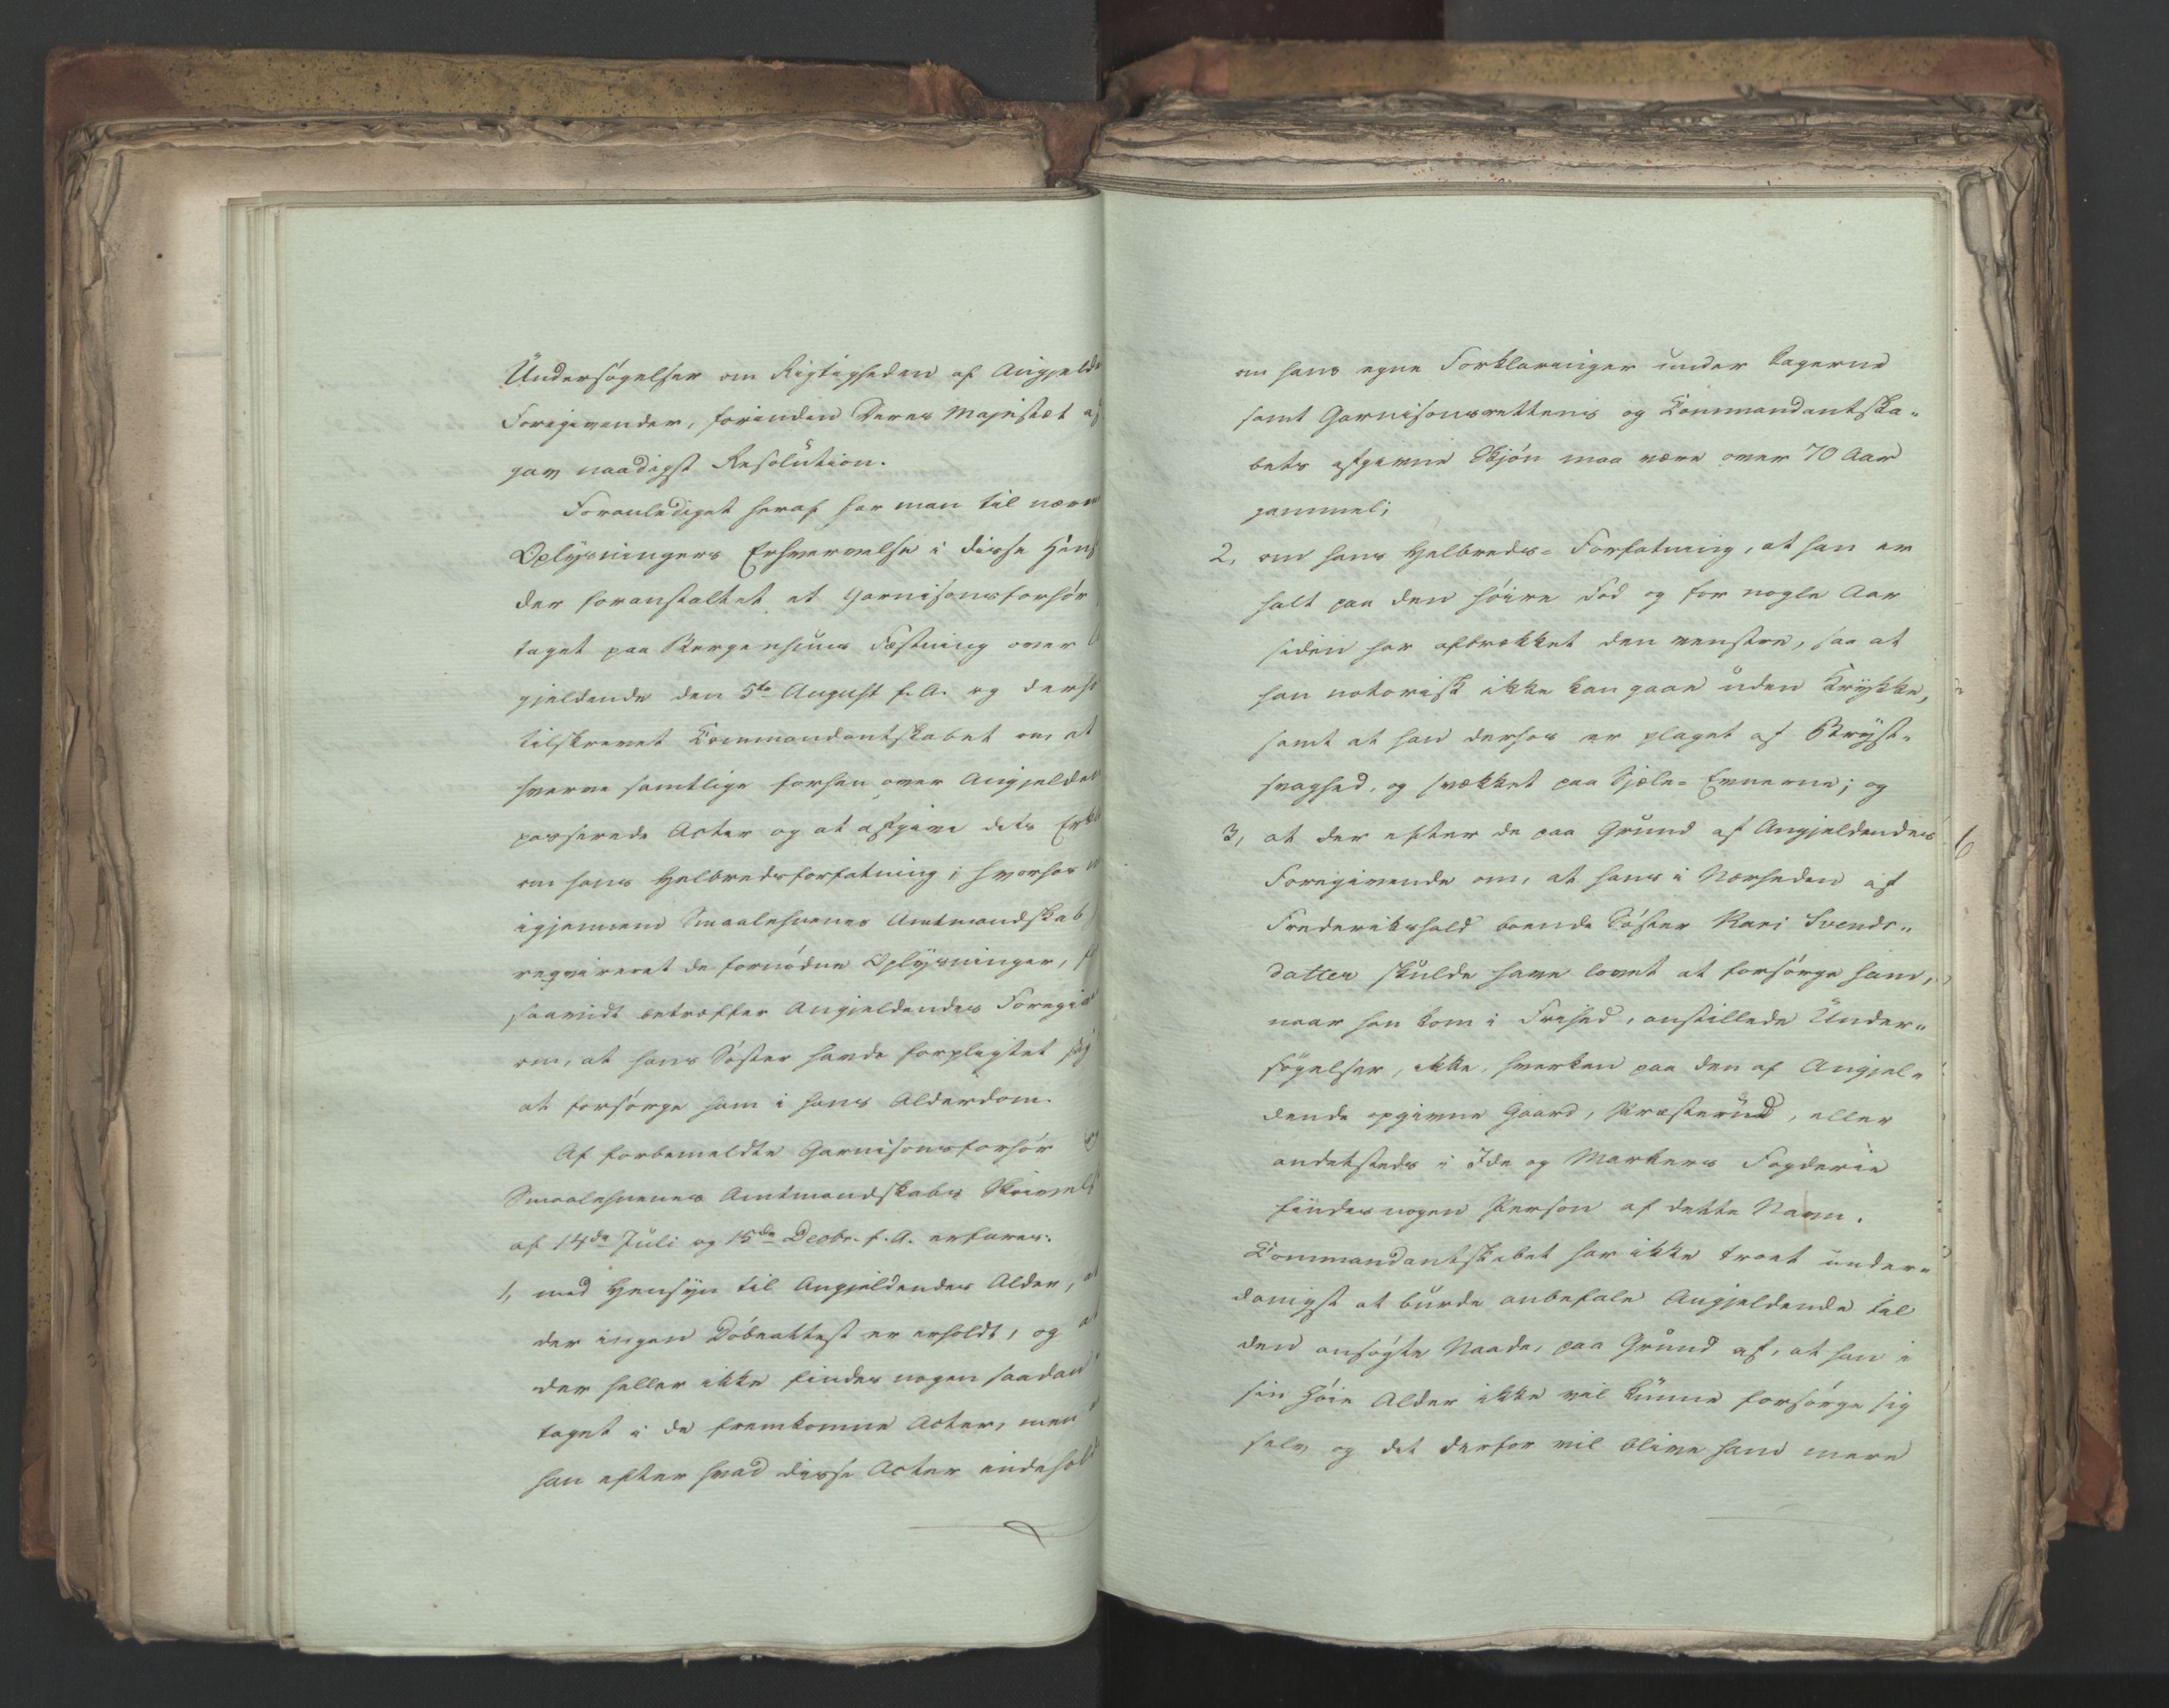 Undersøgelser om Rigtigheden af Angjelde
Foregivender, forinden Deres Majestæt af
gav naadigst Resolution.
Foranlediget heraf har man til nærm
Oplysningers Erhvervelse i disse Hens
der foranstaltet et Garnisonsforhør
taget paa Bergenhuus Fæstning over
gjeldende den 5te August f. A. og derho
tilskrevet Commandantskabet om at
hverve samtlige forhen over Angjelden
passerede Acter og at afgive dets Erkl
om hans Helbredsforfatning; hvorhos
igjennem Smaalehnenes Amtmandskab
reqvireret de fornødne Oplysninger, f
saavidt betræffer Angjeldendes Foregiv
om, at hans Søster havde forpligtet sig
at forsørge ham i hans Alderdom.
Af forbemeldte Garnisonsforhør og
Smaalehnenes Amtmandskabs Skrivels
af 14de Juli og 15de Decbr. f. A. erfares:
1, med Hensyn til Angjeldendes Alder, at
der ingen Døbeattest er erholdt, og at
der heller ikke findes nogen saadan
taget i de fremkomne Acter, men
han efter hvad disse Acter indehold
om hans egne Forklaringer under Sagerne
samt Garnisonsrettens og Commandantska-
bets afgivne Skjøn maa være over 70 Aar
gammel;
2, om hans Helbreds-Forfatning, at han er
halt paa den høire Fod og for nogle Aar
siden har afbrækket den venstre, saa at
han notorisk ikke kan gaae uden Krykke,
samt at han derhos er plaget af Bryst-
svaghed, og svækket paa Sjæls-Evnerne; og
3, at der efter de paa Grund af Angjeldendes
Foregivende om, at hans i Nærheden af
Frederikshald boende Søster Kari Svends-
datter skulde have lovet at forsørge ham,
naar han kom i Frihed, anstillede Under-
søgelser, ikke, hverken paa den af Angjel-
dende opgivne Gaard, Præsterud, eller
andetsteds i Ide og Markers Fogderie
findes nogen Person af dette Navn.
Commandantskabet har ikke troet under-
danigst at burde anbefale Angjeldende til
den ansøgte Naade, paa Grund af, at han i
sin høie Alder ikke vil kunne forsørge sig
selv og det derfor vil blive ham mere